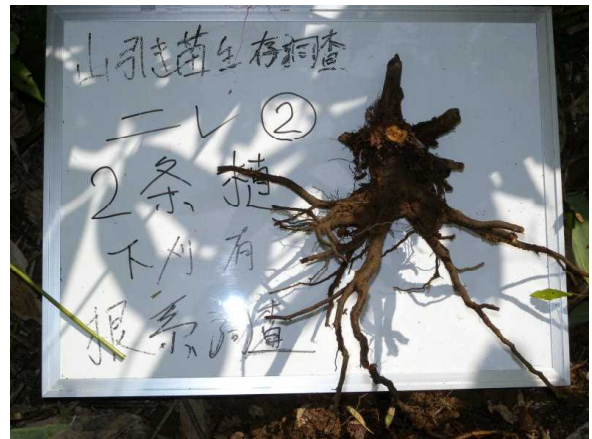 山引き苗生存調査
ニレ ②
2条植
下刈有
根系調査